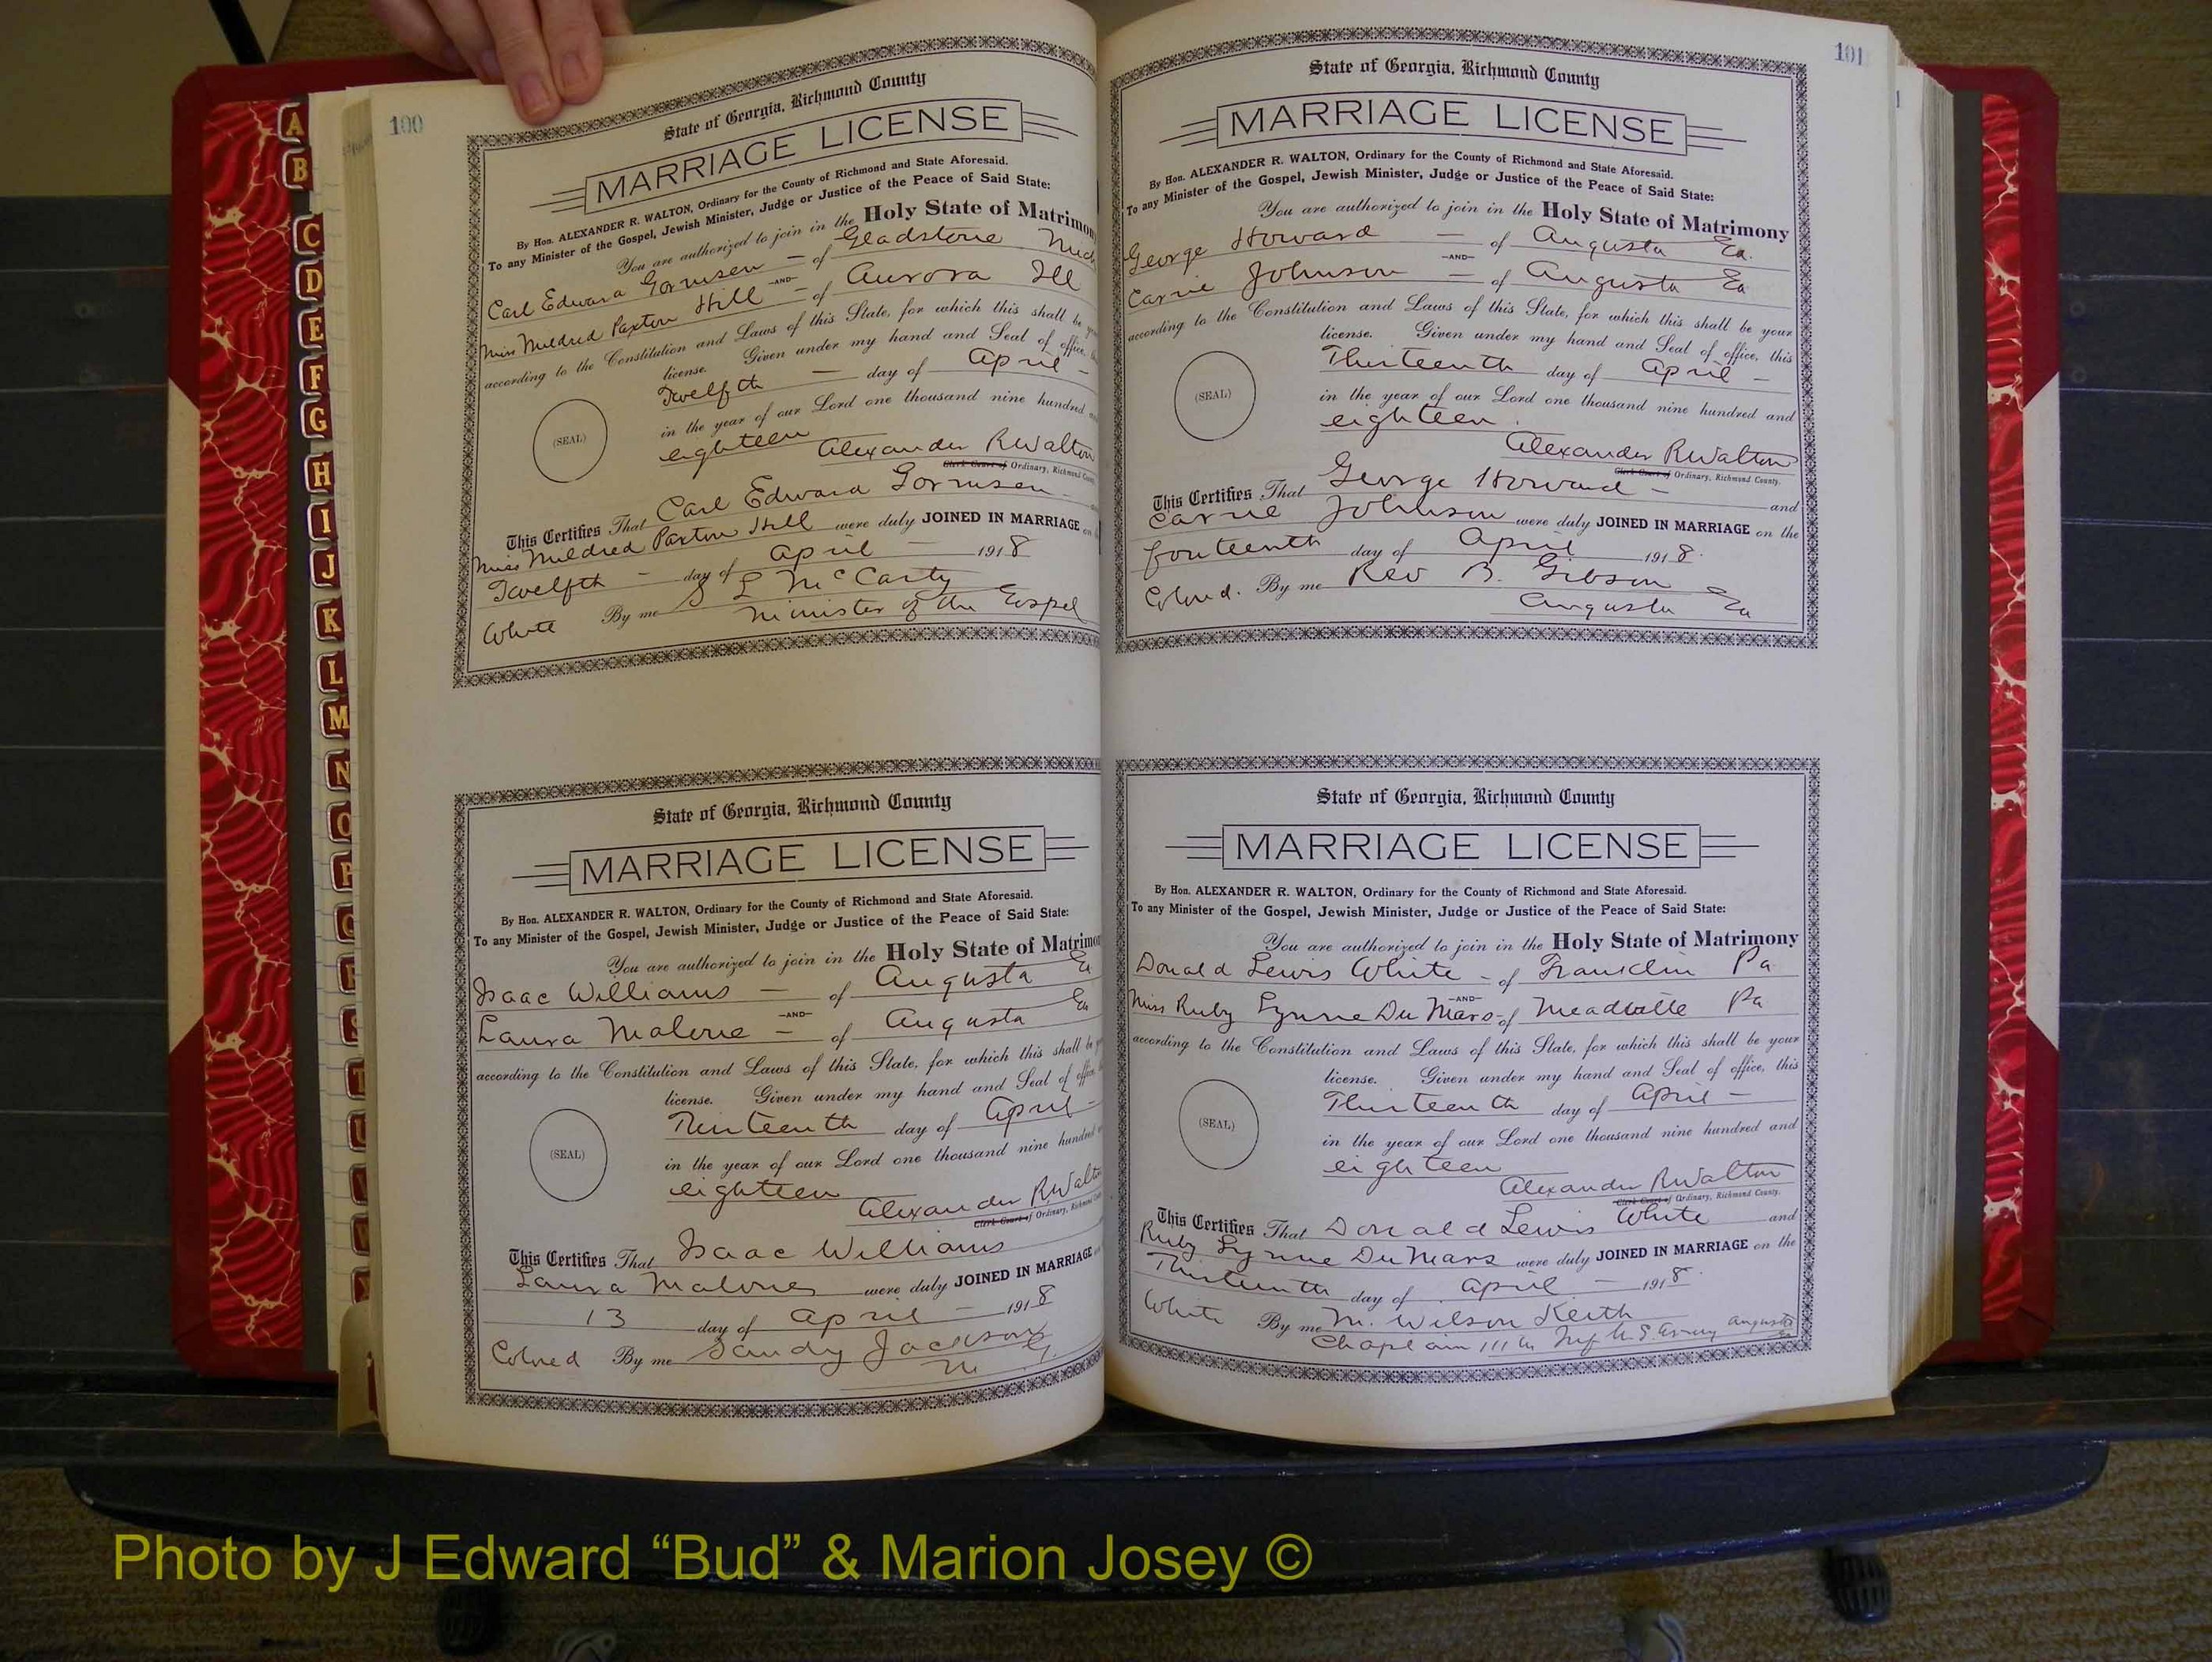 100
State of Georgia, Richmond County
MARRIAGE LICENSE
By Hon. ALEXANDER R. WALTON, Ordinary for the County of Richmond and State Aforesaid.
To any Minister of the Gospel, Jewish Minister, Judge or Justice of the Peace of Said State:
You are authorized to join in the Holy State of Matrimon
Carl Edward Gornusen — of Gladstone Mich
—AND—
Miss Mildred Paxton Hill — of Aurora Ill
according to the Constitution and Laws of this State, for which this shall be
license. Given under my hand and Seal of office,
Twelfth — day of April —
(SEAL)
in the year of our Lord one thousand nine hundred
eighteen
Alexander R Walton
Clerk Court of Ordinary, Richmond
This Certifies That Carl Edward Gornusen
Miss Mildred Paxton Hill were duly JOINED IN MARRIAGE on
Twelfth — day of April — 1918
White By me S L McCarty
Minister of the Gospel
State of Georgia, Richmond County
MARRIAGE LICENSE
By Hon. ALEXANDER R. WALTON, Ordinary for the County of Richmond and State Aforesaid.
To any Minister of the Gospel, Jewish Minister, Judge or Justice of the Peace of Said State:
You are authorized to join in the Holy State of Matrimon
Isaac Williams — of Augusta Ga
—AND—
Laura Malone — of Augusta Ga
according to the Constitution and Laws of this State, for which this shall be
license. Given under my hand and Seal of office
Thirteenth day of April —
(SEAL)
in the year of our Lord one thousand nine hundred
eighteen
Alexander R Walton
Clerk Court of Ordinary, Richmond
This Certifies That Isaac Williams
Laura Malone were duly JOINED IN MARRIAGE
13 day of April — 1918
Colored By me Sandy Jackson
M G.
101
State of Georgia, Richmond County
MARRIAGE LICENSE
By Hon. ALEXANDER R. WALTON, Ordinary for the County of Richmond and State Aforesaid.
To any Minister of the Gospel, Jewish Minister, Judge or Justice of the Peace of Said State:
You are authorized to join in the Holy State of Matrimony
George Howard — of Augusta Ga.
—AND—
Carrie Johnson — of Augusta Ga
according to the Constitution and Laws of this State, for which this shall be your
license. Given under my hand and Seal of office, this
Thirteenth day of April —
(SEAL)
in the year of our Lord one thousand nine hundred and
eighteen.
Alexander R Walton
Clerk Court of Ordinary, Richmond County.
This Certifies That George Howard — and
Carrie Johnson were duly JOINED IN MARRIAGE on the
fourteenth day of April 1918.
Colored. By me Rev B. Gibson
Augusta Ga
State of Georgia, Richmond County
MARRIAGE LICENSE
By Hon. ALEXANDER R. WALTON, Ordinary for the County of Richmond and State Aforesaid.
To any Minister of the Gospel, Jewish Minister, Judge or Justice of the Peace of Said State:
You are authorized to join in the Holy State of Matrimony
Donald Lewis White — of Franklin Pa
—AND—
Miss Ruby Lynne Du Mars — of Meadville Pa
according to the Constitution and Laws of this State, for which this shall be your
license. Given under my hand and Seal of office, this
Thirteenth day of April —
(SEAL)
in the year of our Lord one thousand nine hundred and
eighteen
Alexander R Walton
Clerk Court of Ordinary, Richmond County.
This Certifies That Donald Lewis White and
Ruby Lynne Du Mars were duly JOINED IN MARRIAGE on the
Thirteenth day of April — 1918.
White By me M. Wilson Keith
Chaplain 111th Inf U.S. Army Augusta Ga
A
B
C
D
E
F
G
H
I
J
K
L
M
N
O
P
Q
R
S
T
U
Photo by J Edward “Bud” & Marion Josey ©